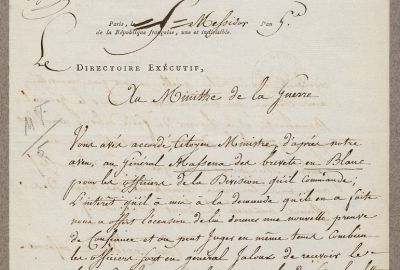 Paris, le Messidor l'an 5.e
de la République française, une et indivisible.
Le
DIRECTOIRE EXÉCUTIF,
Au Ministre de la Guerre
MT/5
Vous avés accordé, Citoyen Ministre, d'après notre
aveu, au Général Massena des brevets en Blanc
pour les officiers de la Division qu'il commande;
L'intérêt qu'il a mis à la demande qu'il en a faite
nous a offert l'occasion de lui donner une nouvelle preuve
de confiance et on peut juger en même temps combien
les officiers sont en général jaloux de recevoir le